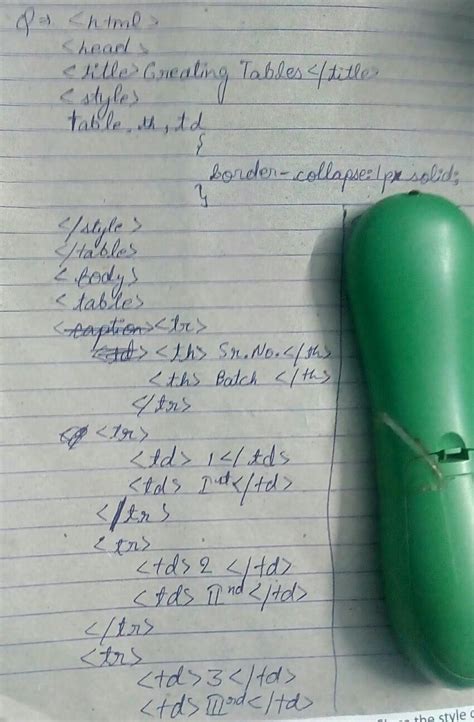 Q⇒ <html>
<head>
<title> Creating Tables </title>
<style>
table, th, td
{
border-collapse: 1px solid;
}
</style>
</table>
<body>
<table>
<caption> <tr>
<td> <th> Sr.No. </th>
<th> Batch </th>
</tr>
<tr>
<td> 1 </td>
<td> Ist </td>
</tr>
<tr>
<td> 2 </td>
<td> IInd </td>
</tr>
<tr>
<td> 3 </td>
<td> IIIrd </td>
the style